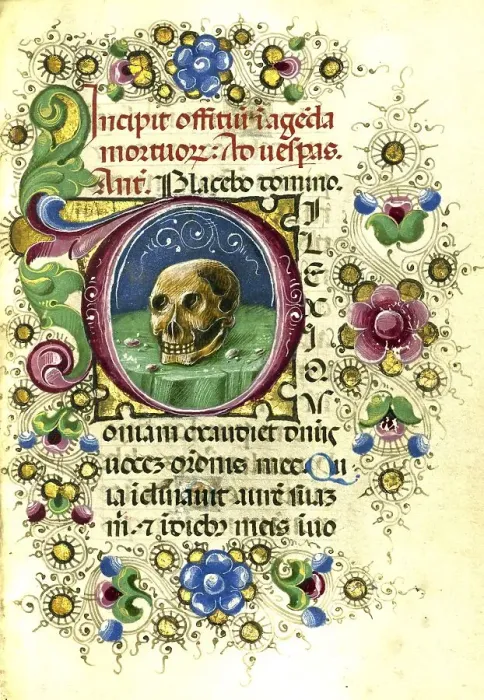 Incipit offitiū ī agēda
mortuoꝝ: Ad uespas.
Añt. Placebo domino.
DILEXIQV
oniam exaudiet dnīs
uocez orōnis mee. Qu
ia iclinauit aurē suaz
m̄. ⁊ ī dieb; meis īuo